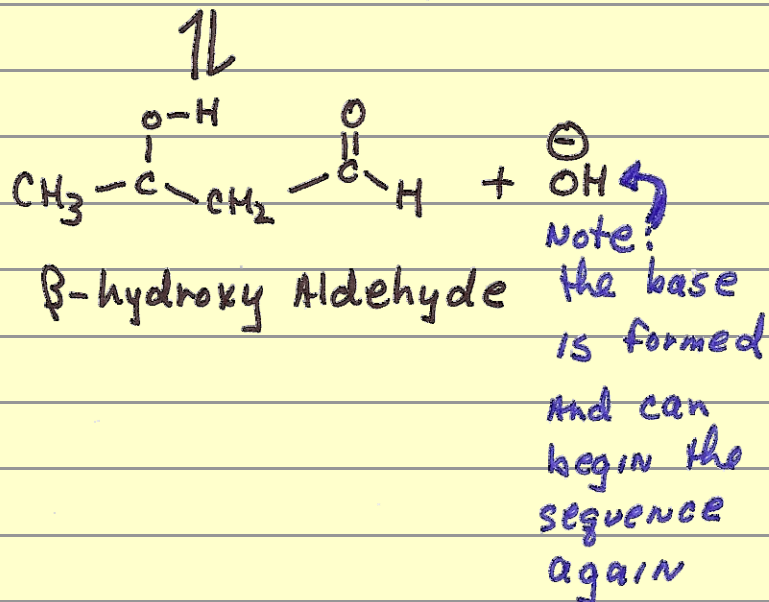 O-H O
CH3-C-CH2-C-H + ⊖OH
β-hydroxy Aldehyde
Note:
the base
is formed
And can
begin the
sequence
again